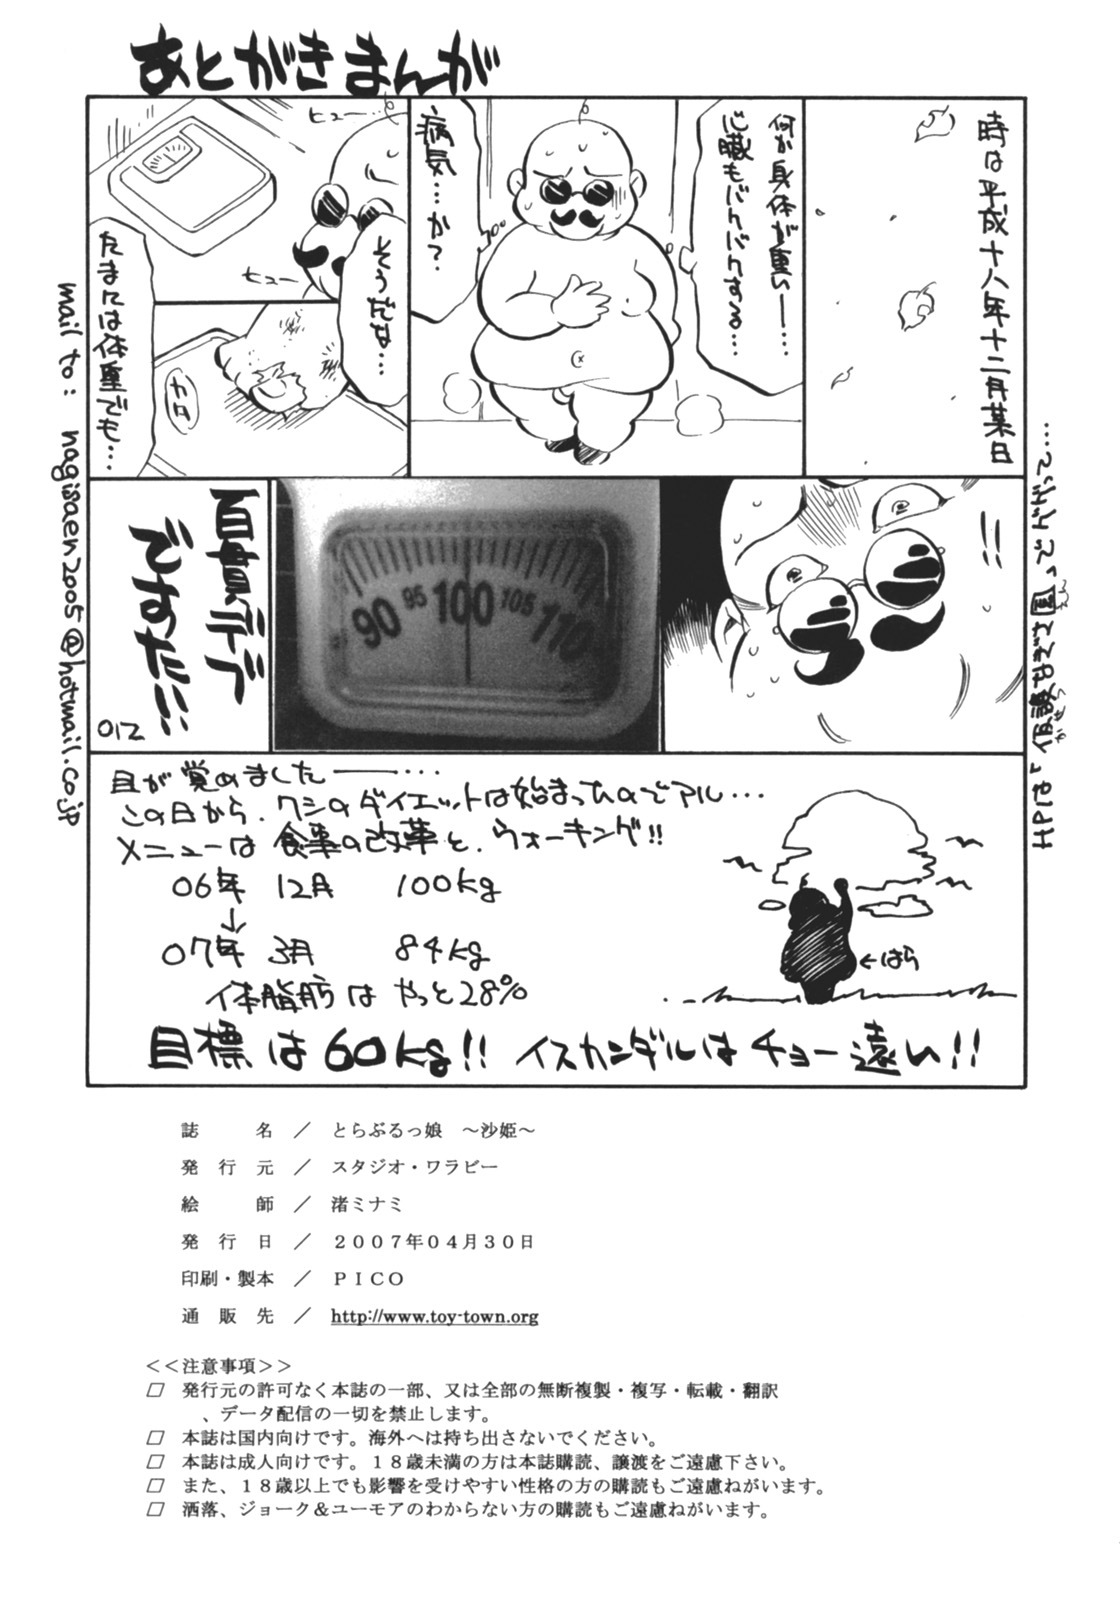 あとがきまんが
時は平成十八年十二月某日
何か身体が重い―…
心臓もバクバクする…
病気…か?
ヒュー…
ヒュー
そうだな…
たまには体重でも…
カタ
!!
90 95 100 105 110
百貫デブ
ですた!!
012
目が覚めました――…
この日から、ワシのダイエットは始まったのでアル…
メニューは食事の改革と、ウォーキング!!
06年 12月 100kg
↓
07年 3月 84kg
体脂肪は やっと28%
←はら
目標は60kg!! イスカンダルはチョー遠い!!
mail to: nagisaen2005@hotmail.co.jp
誌名／とらぶるっ娘 ～沙姫～
発行元／スタジオ・ワラビー
絵師／渚ミナミ
発行日／２００７年０４月３０日
印刷・製本／ＰＩＣＯ
通販先／http://www.toy-town.org
<<注意事項>>
□ 発行元の許可なく本誌の一部、又は全部の無断複製・複写・転載・翻訳
、データ配信の一切を禁止します。
□ 本誌は国内向けです。海外へは持ち出さないでください。
□ 本誌は成人向けです。１８歳未満の方は本誌購読、譲渡をご遠慮下さい。
□ また、１８歳以上でも影響を受けやすい性格の方の購読もご遠慮ねがいます。
□ 洒落、ジョーク＆ユーモアのわからない方の購読もご遠慮ねがいます。